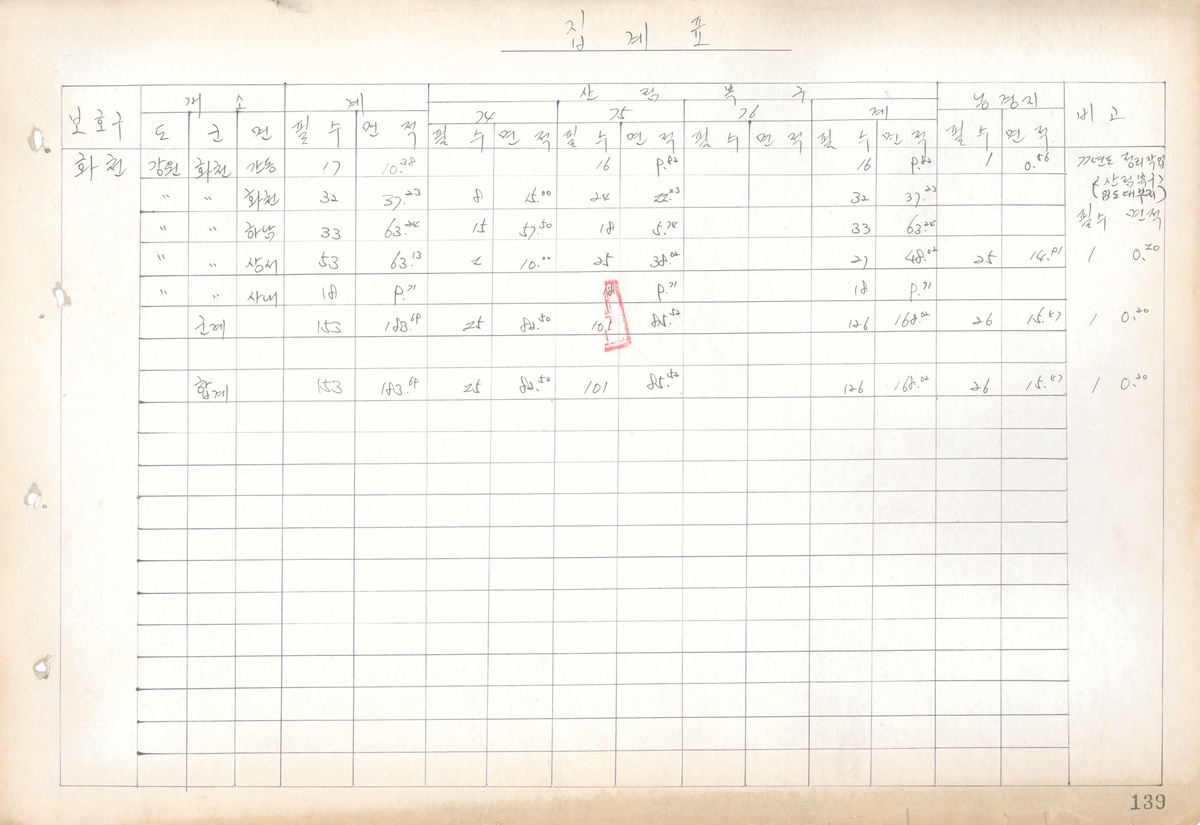 집 계 표
보호구 개 소 계 산 림 복 구 농경지 비 고
74 75 76 계
도 군 면 필 수 면 적 필 수 면 적 필 수 면 적 필 수 면 적 필 수 면 적 필 수 면 적
화천 강원 화천 간동 17 10.38 16 9.82 16 9.82 1 0.56 77년도 정리작업
" " 화천 32 37.23 8 15.00 24 22.23 32 37.23
필수 면적
" " 하남 33 63.24 15 57.50 18 5.74 33 63.24
" " 상서 53 63.13 2 10.00 25 38.02 27 48.02 25 14.91 1 0.20
" " 사내 18 9.71 18 9.71 18 9.71
군계 153 183.69 25 82.50 101 85.52 126 168.02 26 15.67 1 0.20
합계 153 183.69 25 82.50 101 85.52 126 168.02 26 15.67 1 0.20
139